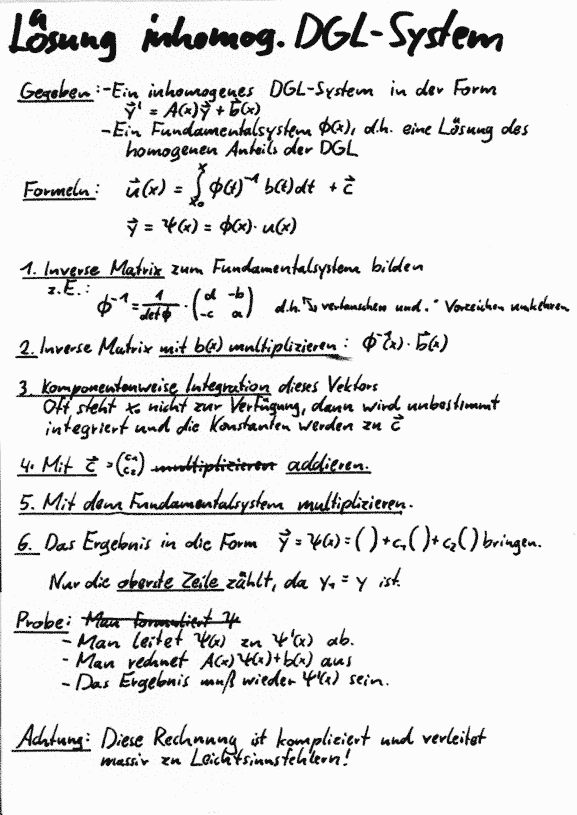 Lösung inhomog. DGL-System
Gegeben: - Ein inhomogenes DGL-System in der Form
y⃗' = A(x)y⃗ + b⃗(x)
- Ein Fundamentalsystem ϕ(x), d.h. eine Lösung des
homogenen Anteils der DGL
Formeln: u⃗(x) = ∫_{x₀}^{x} ϕ(t)⁻¹ b(t)dt + c⃗
y⃗ = Ψ(x) = ϕ(x)· u(x)
1. Inverse Matrix zum Fundamentalsystem bilden
z.B.: ϕ⁻¹ = 1/detϕ · (d -b / -c a) d.h. "↘" vertauschen und "." Vorzeichen umkehren
2. Inverse Matrix mit b(x) multiplizieren: ϕ⁻¹(x)· b⃗(x)
3. Komponentenweise Integration dieses Vektors
Oft steht x₀ nicht zur Verfügung, dann wird unbestimmt
integriert und die Konstanten werden zu c⃗
4. Mit c⃗ = (c₁ / c₂) multiplizieren addieren.
5. Mit dem Fundamentalsystem multiplizieren.
6. Das Ergebnis in die Form y⃗ = Ψ(x) = ( ) + c₁ ( ) + c₂ ( ) bringen.
Nur die oberste Zeile zählt, da y₁ = y ist.
Probe: Man formuliert Ψ
- Man leitet Ψ(x) zu Ψ'(x) ab.
- Man rechnet A(x)Ψ(x)+b(x) aus
- Das Ergebnis muß wieder Ψ'(x) sein.
Achtung: Diese Rechnung ist kompliziert und verleitet
massiv zu Leichtsinnsfehlern!